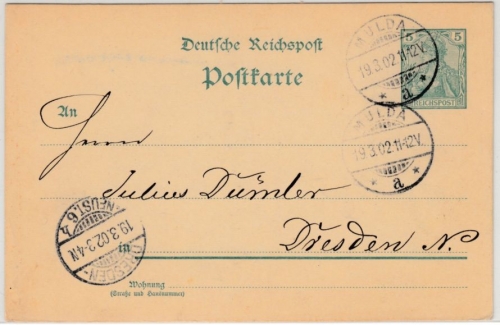 MULDA
19.3.02.11-12V.
a
5 5
REICHSPOST
Deutsche Reichspost
Postkarte
MULDA
19.3.02.11-12V.
a
An
Herrn
Julius Dümler
in Dresden N.
DRESDEN-
NEUST. 6
19.3.02.3-4N.
Wohnung
(Straße und Hausnummer)